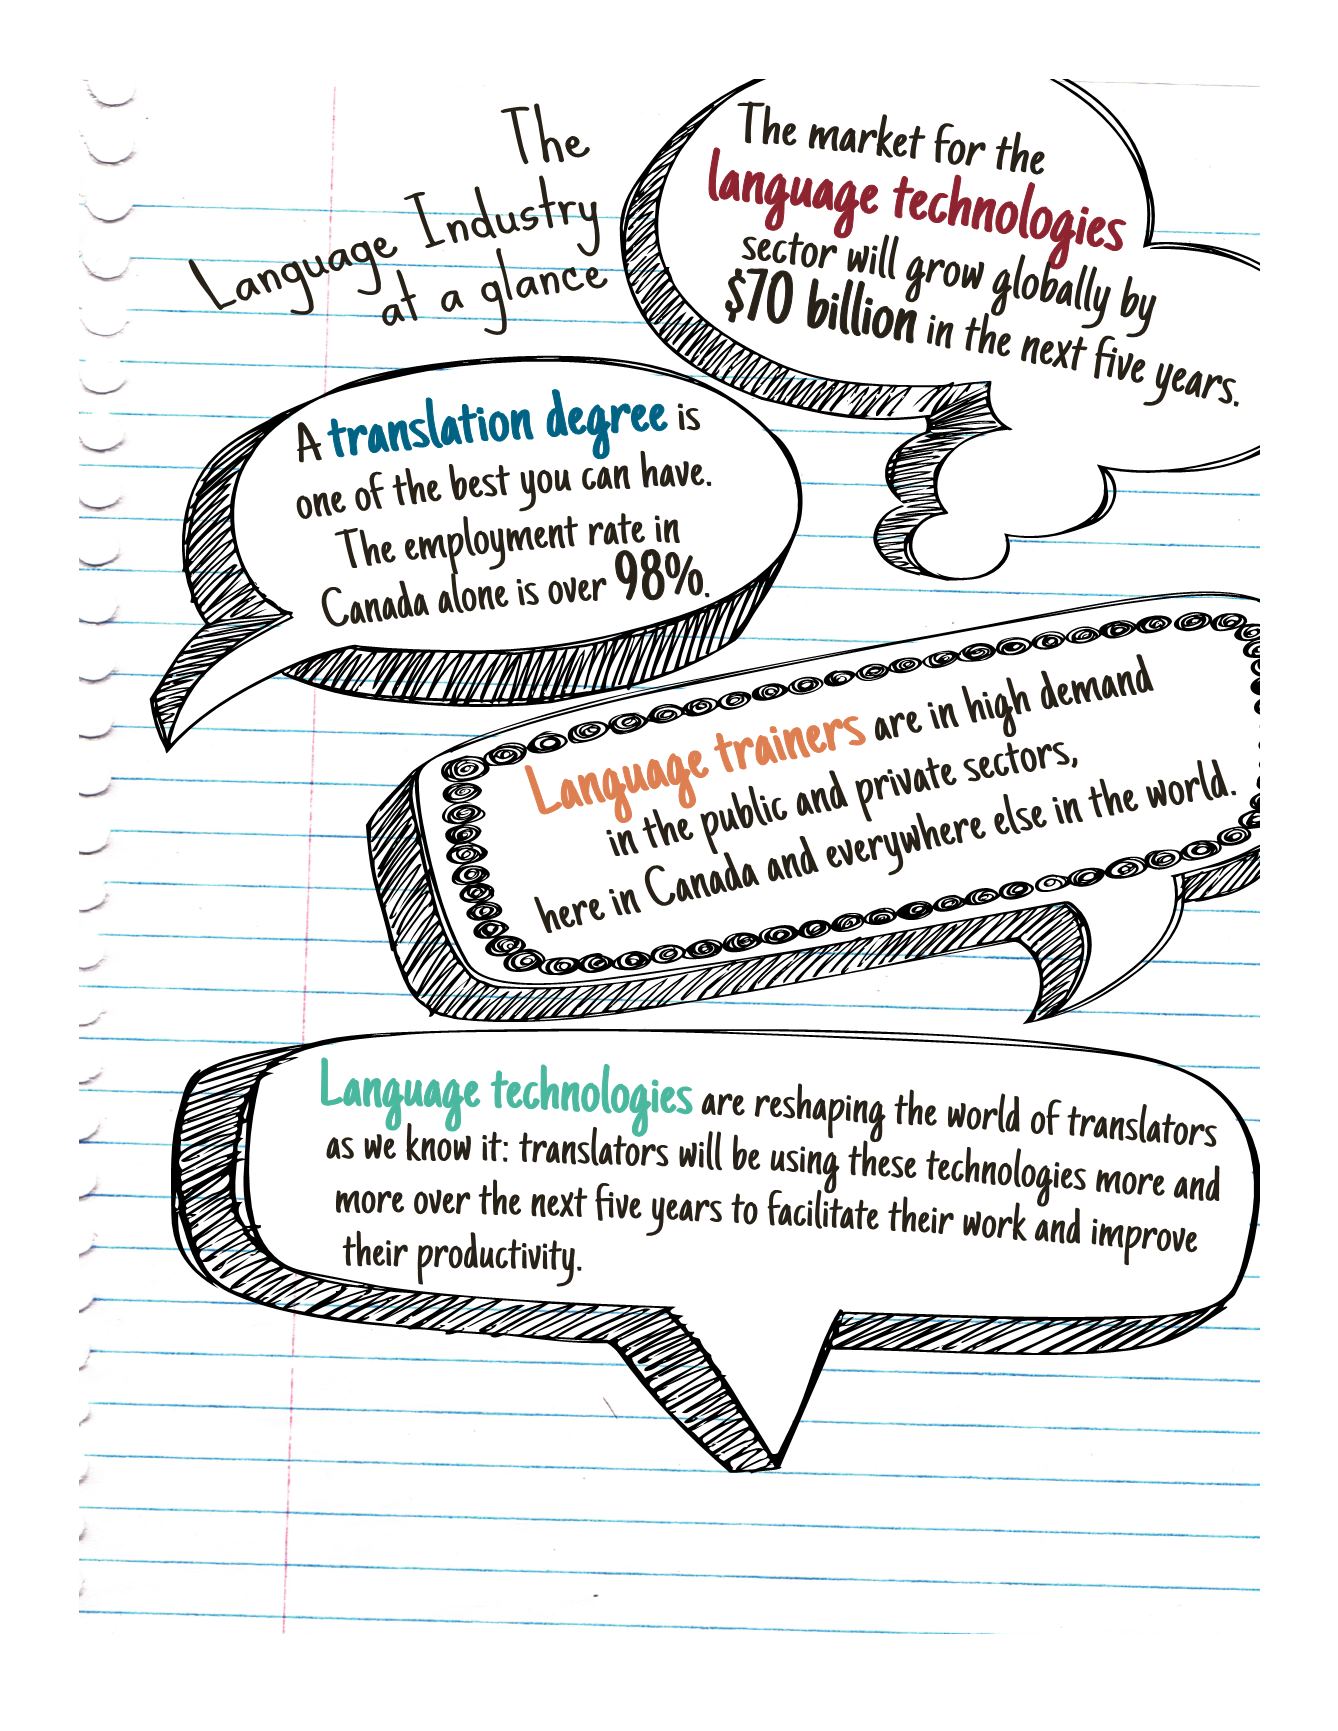 The
Language Industry
at a glance
The market for the
language technologies
sector will grow globally by
$70 billion in the next five years.
A translation degree is
one of the best you can have.
The employment rate in
Canada alone is over 98%.
Language trainers are in high demand
in the public and private sectors,
here in Canada and everywhere else in the world.
Language technologies are reshaping the world of translators
as we know it: translators will be using these technologies more and
more over the next five years to facilitate their work and improve
their productivity.